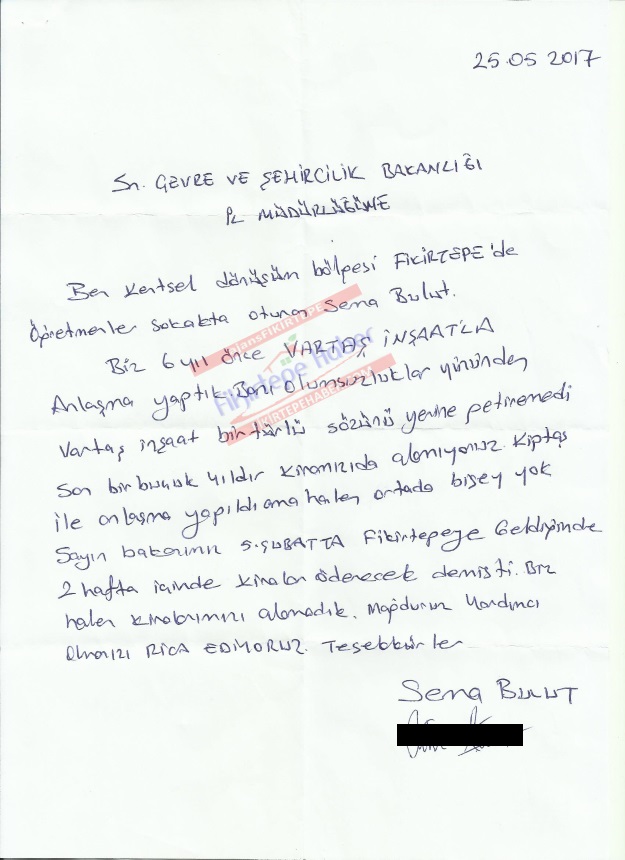 25.05 2017
Sn. ÇEVRE VE ŞEHİRCİLİK BAKANLIĞI
İL MÜDÜRLÜĞÜNE
Ben Kentsel dönüşüm bölgesi FİKİRTEPE'de
Öğretmenler sokakta oturan Sema Bulut.
Biz 6 yıl önce VARTAŞ İNŞAAT'LA
Anlaşma yaptık Bazı Olumsuzluklar yüzünden
Vartaş inşaat bir türlü sözünü yerine getiremedi
Son bir buçuk yıldır kiramızıda alamıyoruz. Kiptaş
ile anlaşma yapıldı ama halen ortada bişey yok
Sayın bakanımız 5.ŞUBATTA Fikirtepeye Geldiğinde
2 hafta içinde kiralar ödenecek demişti. Biz
halen kiralarımızı alamadık. Mağduruz Yardımcı
Olmanızı RİCA EDİYORUZ. Teşekkürler
Sema BULUT
AjansFIKIRTEPE
Fikirtepe Haber
FIKIRTEPEHABER.COM